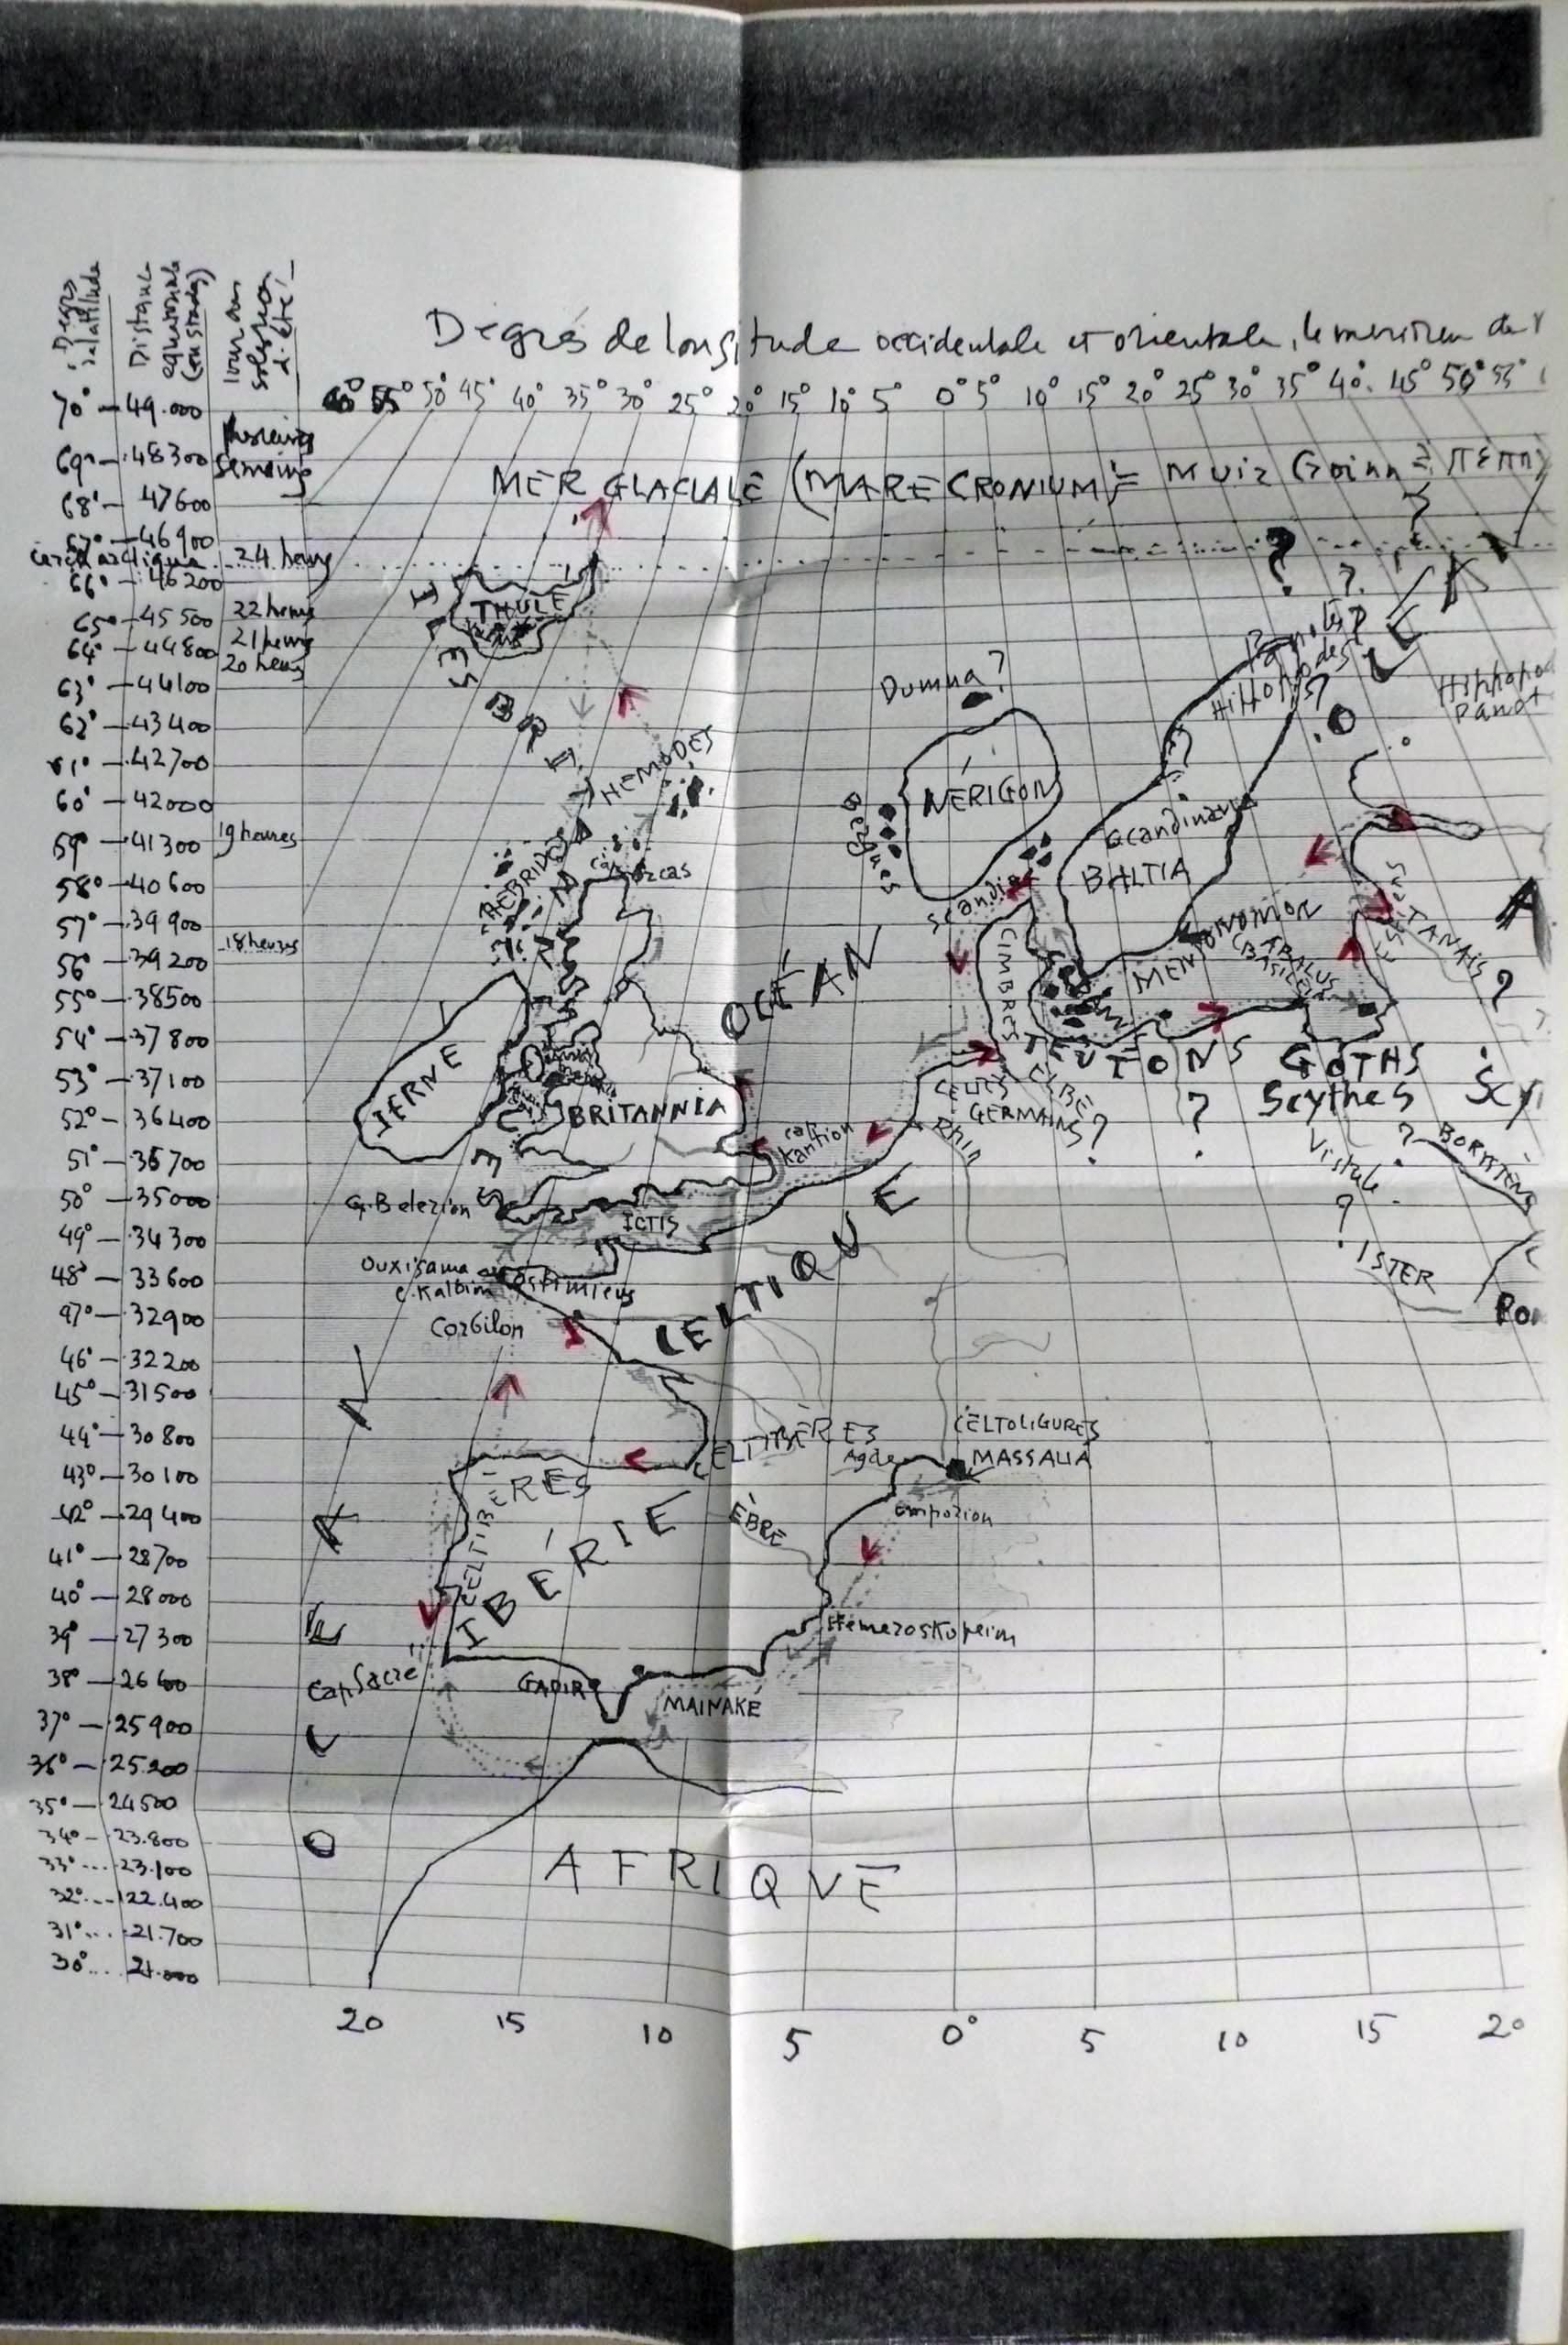 Degrés de longitude occidentale et orientale, le meridien de
Degrés
latitude
Distance
equatoriale
(en stades)
jour au
solstice
d'été
60° 55° 50° 45° 40° 35° 30° 25° 20° 15° 10° 5° 0° 5° 10° 15° 20° 25° 30° 35° 40° 45° 50° 55°
70° - 49.000
Plusieurs
semaines
69° - 48300
68° - 47600
67° - 46900
cercle arctique 24 heures
66° - 46200
65° - 45500 22 heures
64° - 44800 21 heures
20 heures
63° - 44100
62° - 43400
61° - 42700
60° - 42000
59° - 41300 19 heures
58° - 40600
57° - 39900
18 heures
56° - 39200
55° - 38500
54° - 37800
53° - 37100
52° - 36400
51° - 35700
50° - 35000
49° - 34300
48° - 33600
47° - 32900
46° - 32200
45° - 31500
44° - 30800
43° - 30100
42° - 29400
41° - 28700
40° - 28000
39° - 27300
38° - 26600
37° - 25900
36° - 25.200
35° - 24500
34° - 23.800
33° ... 23.100
32° ... 22.400
31° ... 21.700
30° ... 21.000
MER GLACIALE (MARE CRONIUM) = Muir Croinn =
THULÉ
ISBRITANNIQUES
Dumna ?
NÉRIGON
HEMODES
Bergues
HEBRIDES
cap Orcas
Scandie
Scandinavie
BALTIA
Panotes?
Hippopodes?
Hippopod
Panot
TANAÏS
?
MENTONOMON
ABALUS
(BASILEIA)
CIMBRES
TEUTONS
?
GOTHS
Scythes
OCÉAN
IERNE
BRITANNIA
cap
Kantion
CELTES
GERMAINS?
ELBE
Rhin
Vistule
?
?
BORISTÈNE
ISTER
G. Belerion
ICTIS
Ouxisama
C. Kalbion
Ostimiens
Corbilon
CELTIQUE
CELTIBÈRES
CELTOLIGURES
Agde
MASSALIA
emporion
CELTIBÈRES
IBÉRIE
ÈBRE
Hemeroskopeion
Cap Sacré
GADIR
MAINAKÉ
OCÉAN
AFRIQUE
20 15 10 5 0° 5 10 15 20